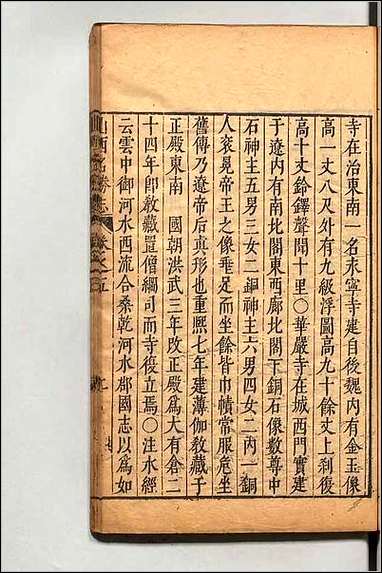 寺在治東南一名永寧寺建自後魏內有金玉像
高一丈八尺外有九級浮圖高九十餘丈上剎復
高十丈鈴鐸聲聞十里〇華嚴寺在城西門實建
于遼內有南北閣東西廊北閣下銅石像數尊中
石神主五男三女二銅神主六男四女二內一銅
人衮冕帝王之像垂足而坐餘皆巾幘常服危坐
舊傳乃遼帝后真形也重熙七年建薄伽教藏于
正殿東南　國朝洪武三年改正殿爲大有倉二
十四年卽教藏置僧綱司而寺復立焉〇注水經
云雲中御河水西流合桑乾河水郡國志以爲如
山西名勝志　卷之五